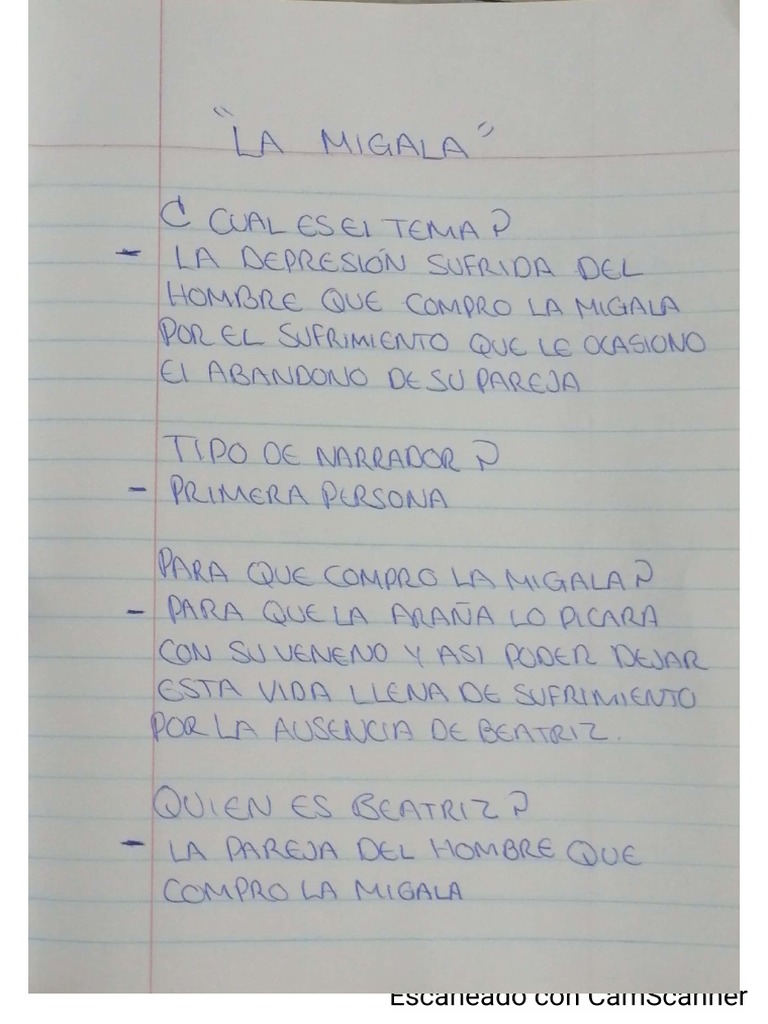 "LA MIGALA"
¿ CUAL ES El TEMA ?
- LA DEPRESIÓN SUFRIDA DEL
HOMBRE QUE COMPRO LA MIGALA
POR EL SUFRIMIENTO QUE LE OCASIONO
El ABANDONO DE SU PAREJA
TIPO DE NARRADOR ?
- PRIMERA PERSONA
PARA QUE COMPRO LA MIGALA ?
- PARA QUE LA ARAÑA LO PICARA
CON SU VENENO Y ASI PODER DEJAR
ESTA VIDA LLENA DE SUFRIMIENTO
POR LA AUSENCIA DE BEATRIZ.
QUIEN ES BEATRIZ ?
- LA PAREJA DEL HOMBRE QUE
COMPRO LA MIGALA
Escaneado con CamScanner